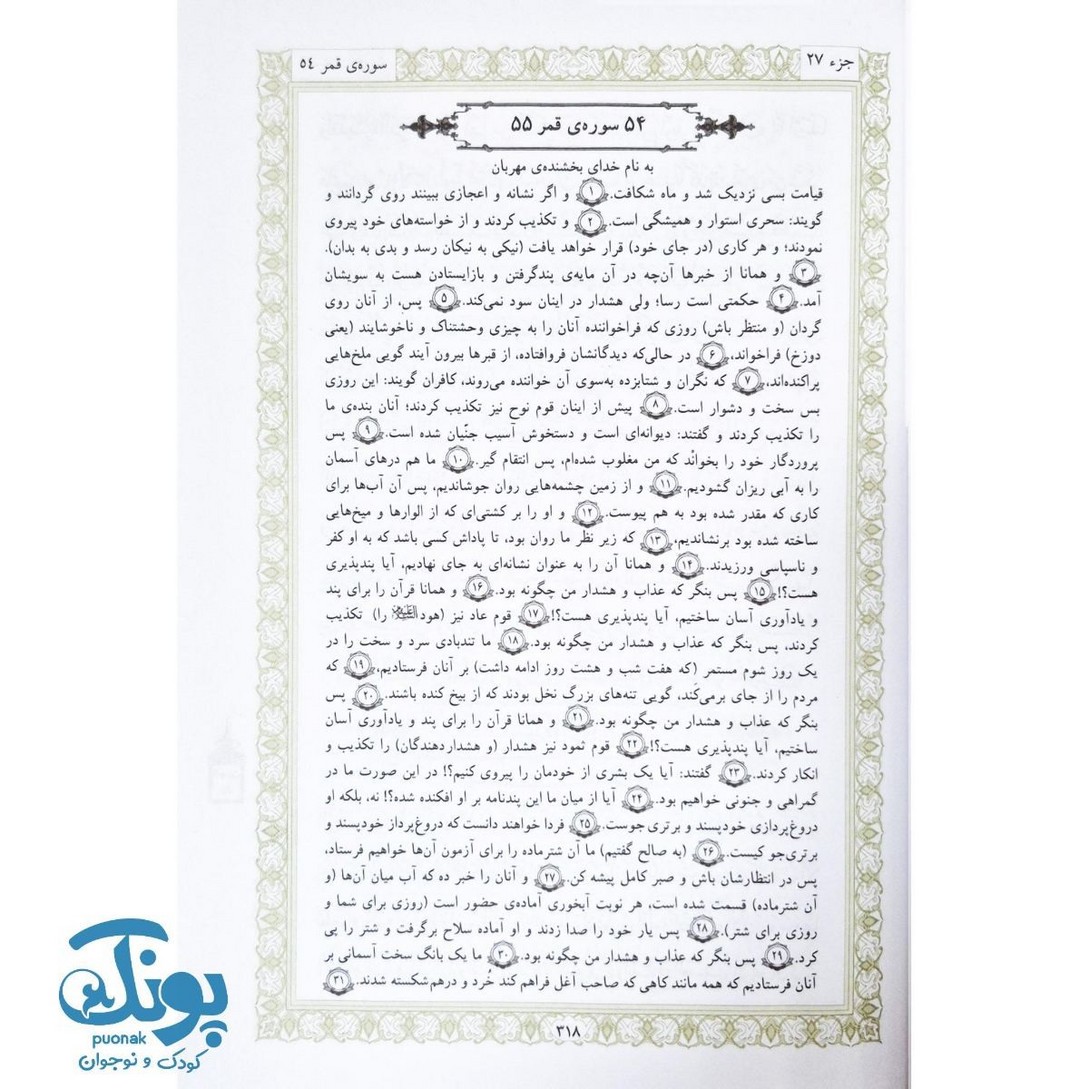 جزء ۲۷
سوره‌ی قمر ٥٤
۵۴ سوره‌ی قمر ۵۵
به نام خدای بخشنده‌ی مهربان
قیامت بسی نزدیک شد و ماه شکافت. ۱ و اگر نشانه و اعجازی ببینند روی گردانند و
گویند: سحری استوار و همیشگی است. ۲ و تکذیب کردند و از خواسته‌های خود پیروی
نمودند؛ و هر کاری (در جای خود) قرار خواهد یافت (نیکی به نیکان رسد و بدی به بدان).
۳ و همانا از خبرها آن‌چه در آن مایه‌ی پندگرفتن و بازایستادن هست به سویشان
آمد. ۴ حکمتی است رسا؛ ولی هشدار در اینان سود نمی‌کند. ۵ پس، از آنان روی
گردان (و منتظر باش) روزی که فراخواننده آنان را به چیزی وحشتناک و ناخوشایند (یعنی
دوزخ) فراخواند، ۶ در حالی‌که دیدگانشان فروافتاده، از قبرها بیرون آیند گویی ملخ‌هایی
پراکنده‌اند، ۷ که نگران و شتابزده به‌سوی آن خواننده می‌روند، کافران گویند: این روزی
بس سخت و دشوار است. ۸ پیش از اینان قوم نوح نیز تکذیب کردند؛ آنان بنده‌ی ما
را تکذیب کردند و گفتند: دیوانه‌ای است و دستخوش آسیب جنّیان شده است. ۹ پس
پروردگار خود را بخوانْد که من مغلوب شده‌ام، پس انتقام گیر. ۱۰ ما هم درهای آسمان
را به آبی ریزان گشودیم. ۱۱ و از زمین چشمه‌هایی روان جوشاندیم، پس آن آب‌ها برای
کاری که مقدر شده بود به هم پیوست. ۱۲ و او را بر کشتی‌ای که از الوارها و میخ‌هایی
ساخته شده بود برنشاندیم، ۱۳ که زیر نظر ما روان بود، تا پاداش کسی باشد که به او کفر
و ناسپاسی ورزیدند. ۱۴ و همانا آن را به عنوان نشانه‌ای به جای نهادیم، آیا پندپذیری
هست؟! ۱۵ پس بنگر که عذاب و هشدار من چگونه بود. ۱۶ و همانا قرآن را برای پند
و یادآوری آسان ساختیم، آیا پندپذیری هست؟! ۱۷ قوم عاد نیز (هود را) تکذیب
کردند، پس بنگر که عذاب و هشدار من چگونه بود. ۱۸ ما تندبادی سرد و سخت را در
یک روز شوم مستمر (که هفت شب و هشت روز ادامه داشت) بر آنان فرستادیم، ۱۹ که
مردم را از جای برمی‌کَند، گویی تنه‌های بزرگ نخل بودند که از بیخ کنده باشند. ۲۰ پس
بنگر که عذاب و هشدار من چگونه بود. ۲۱ و همانا قرآن را برای پند و یادآوری آسان
ساختیم، آیا پندپذیری هست؟! ۲۲ قوم ثمود نیز هشدار (و هشداردهندگان) را تکذیب و
انکار کردند. ۲۳ گفتند: آیا یک بشری از خودمان را پیروی کنیم؟! در این صورت ما در
گمراهی و جنونی خواهیم بود. ۲۴ آیا از میان ما این پندنامه بر او افکنده شده؟! نه، بلکه او
دروغ‌پردازی خودپسند و برتری جوست. ۲۵ فردا خواهند دانست که دروغ‌پرداز خودپسند و
برتری‌جو کیست. ۲۶ (به صالح گفتیم) ما آن شترماده را برای آزمون آن‌ها خواهیم فرستاد،
پس در انتظارشان باش و صبر کامل پیشه کن. ۲۷ و آنان را خبر ده که آب میان آن‌ها (و
آن شترماده) قسمت شده است، هر نوبت آبخوری آماده‌ی حضور است (روزی برای شما و
روزی برای شتر). ۲۸ پس یار خود را صدا زدند و او آماده سلاح برگرفت و شتر را پی
کرد. ۲۹ پس بنگر که عذاب و هشدار من چگونه بود. ۳۰ ما یک بانگ سخت آسمانی بر
آنان فرستادیم که همه مانند کاهی که صاحب آغل فراهم کند خُرد و درهم‌شکسته شدند. ۳۱
۳۱۸
پونک
puonak
کودک و نوجوان